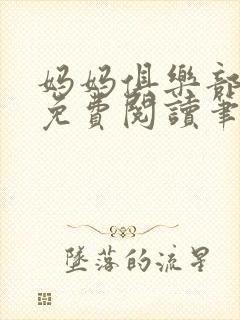 媽媽俱樂部
免費閱讀筆
墜落的流星